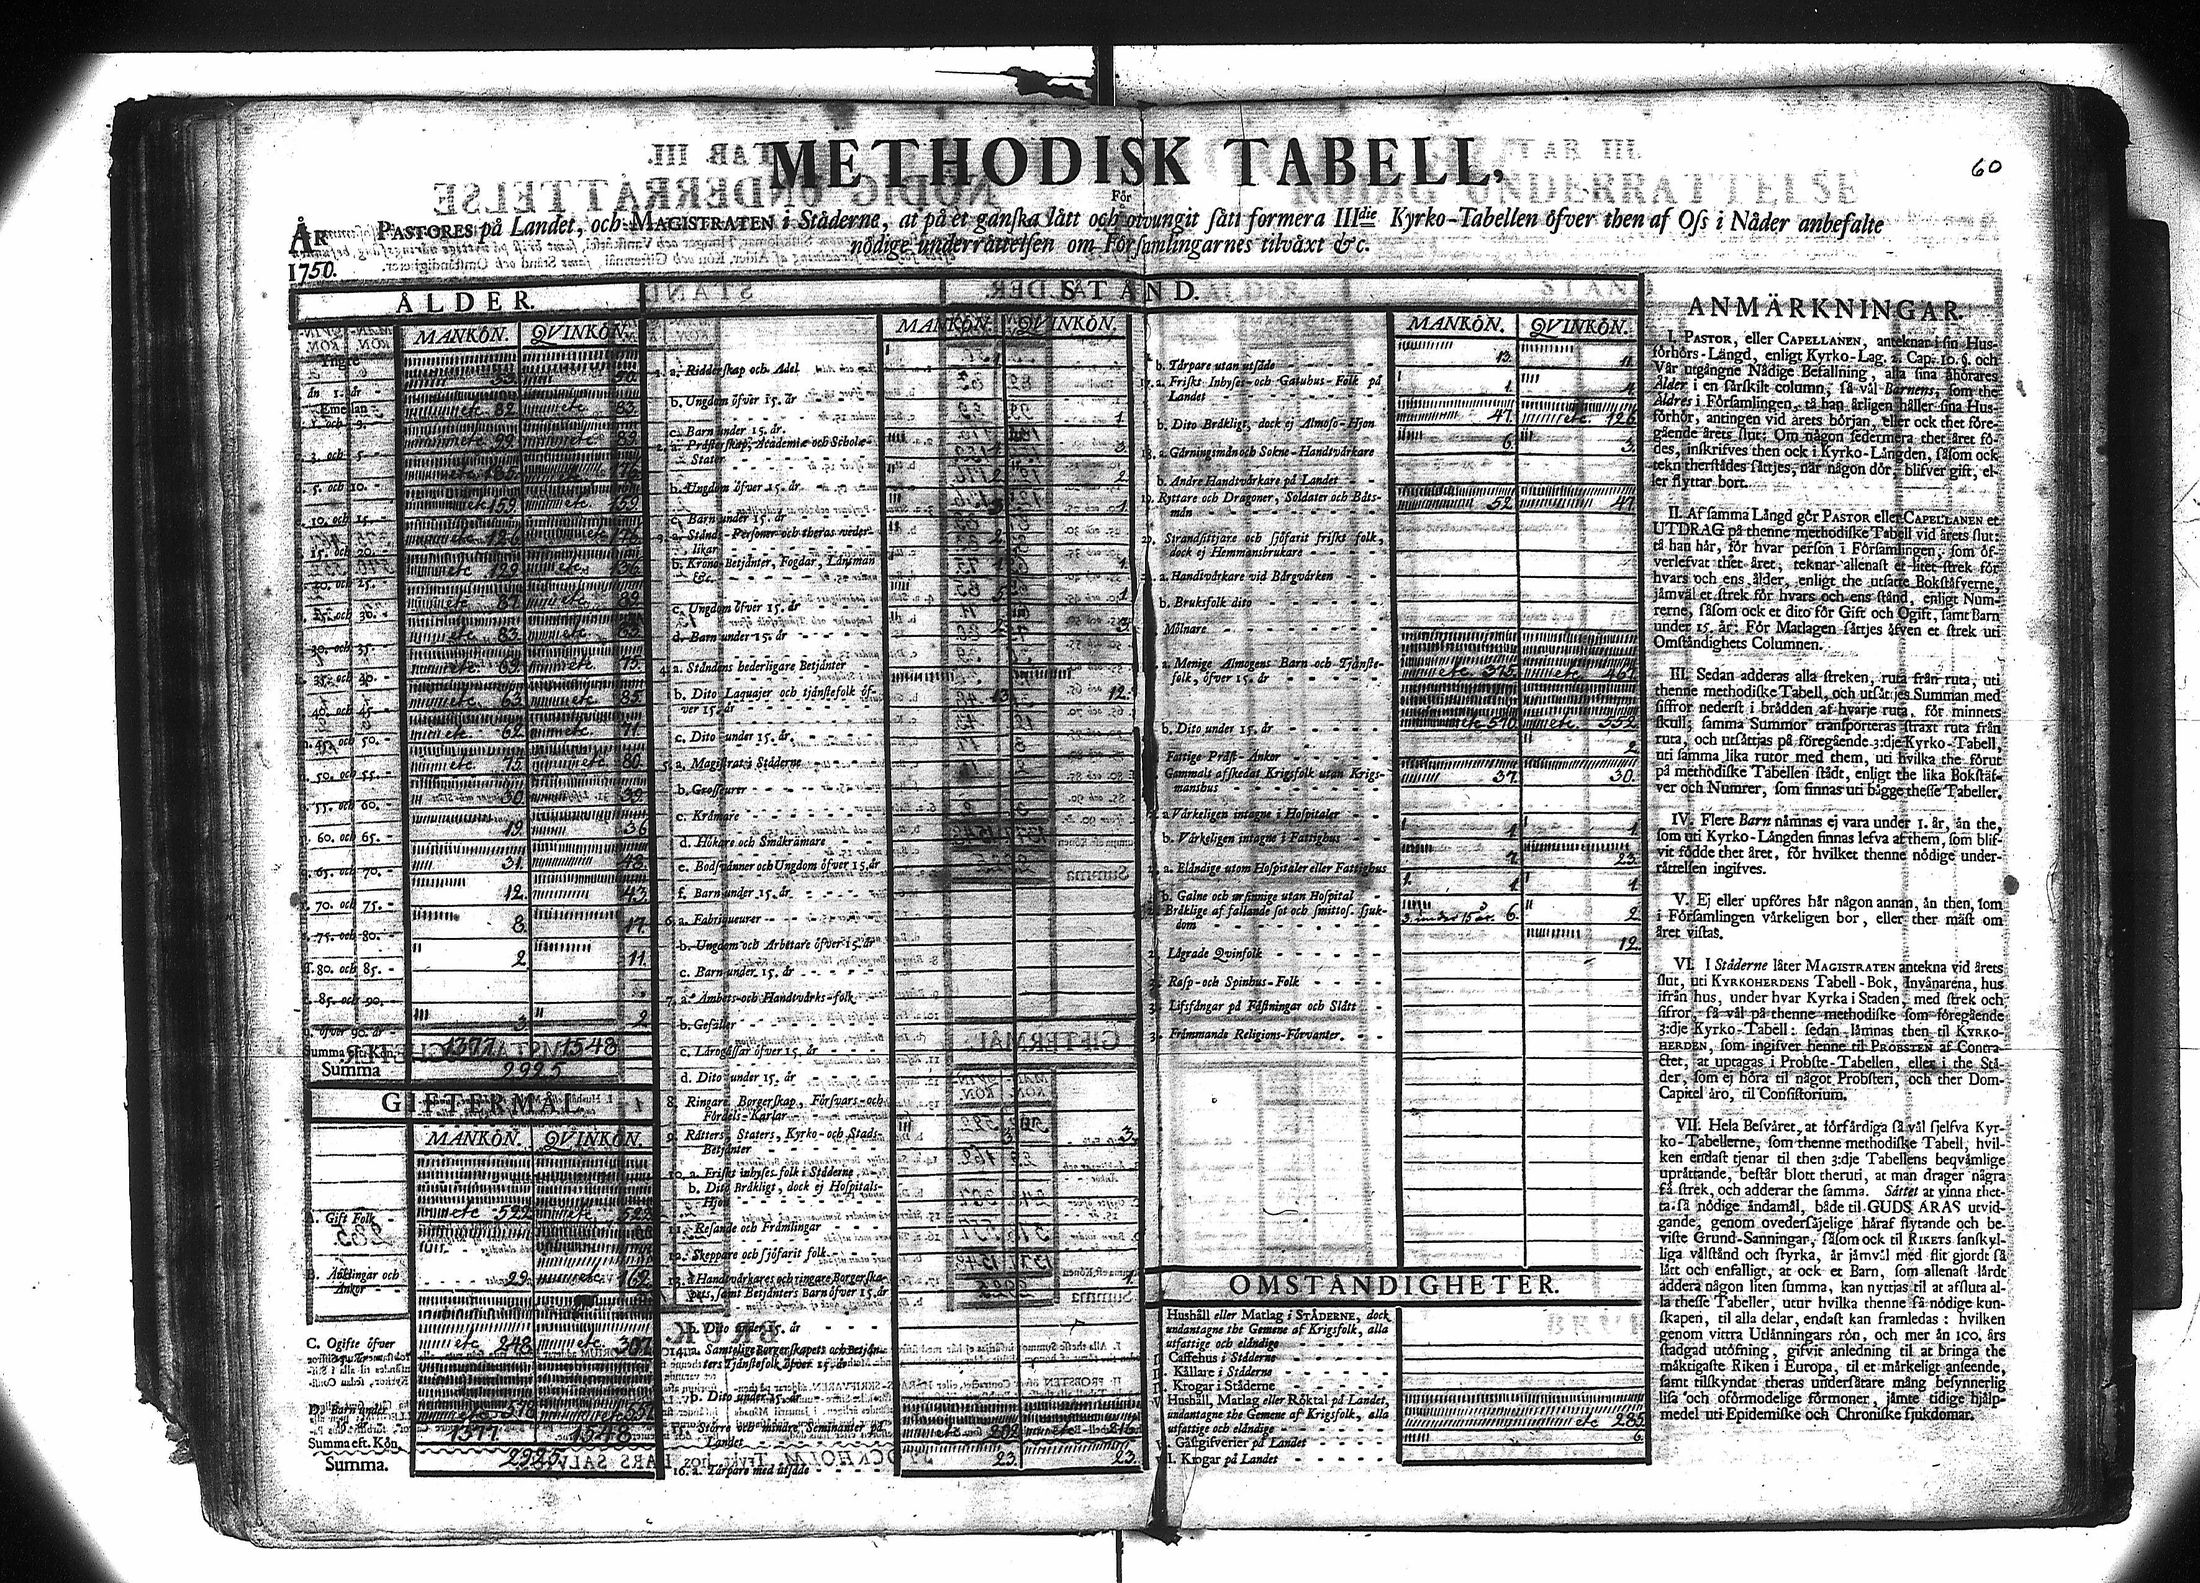 60
METHODISK TABELL,
För
PASTORES på Landet, och MAGISTRATEN i Städerne, at på et ganska lätt och otvungit sätt formera IIIdie Kyrko-Tabellen öfver then af Oss i Nåder anbefalte
nödige underrättelsen om Församlingarnes tilväxt &c.
ÅR
1750.
ÅLDER.
MANKÖN. QVINKÖN.
Yngre
än 1. år
Emellan
1. och 3. 82. 83.
3. och 5. 99. 89.
5. och 10. 185. 176.
10. och 15. 159. 159.
15. och 20. 126. 176.
20. och 25. 129. 136.
25. och 30. 87. 89.
30. och 35. 83.
35. och 40. 69. 75.
40. och 45. 63. 85.
45. och 50. 62. 71.
50. och 55. 75. 80.
55. och 60. 30. 39.
60. och 65. 19. 36
65. och 70. 31. 48.
70. och 75. 12. 43.
75. och 80. 8. 17.
80. och 85. 2. 11.
85. och 90.
öfver 90. år 3. 2
Summa eft. Kön. 1377 1548
Summa 2925
GIFTERMÅL.
MANKÖN. QVINKÖN.
A. Gift Folk 522 522
B. Änklingar och
Änkor 29. 162.
C. Ogifte öfver
15. år 248. 307.
D. Barn under
15. år 578 557
Summa eft. Kön. 1377 1548
Summa. 2925.
STÅND.
MANKÖN. QVINKÖN.
1. a. Ridderskap och Adel
b. Ungdom öfver 15. år
c. Barn under 15. år. 1.
2. a. Prästerskap, Academiæ och Scholæ-
Stater 3.
b. Ungdom öfver 15. år 2.
c. Barn under 15. år
3. a. Stånds-Personer och theras veder-
likar
b. Krono-Betjänter, Fogdar, Länsmän
&c.
c. Ungdom öfver 15. år
d. Barn under 15. år 3.
4. a. Ståndens hederligare Betjänter
b. Dito Laquajer och tjänstefolk öf-
ver 15. år 13. 12.
c. Dito under 15. år.
5. a. Magistrat i Städerne
b. Grosseurer
c. Krämare
d. Hökare och Småkrämare
e. Bodsvänner och Ungdom öfver 15. år
f. Barn under 15. år
6. a. Fabriqueurer
b. Ungdom och Arbetare öfver 15. år
c. Barn under 15. år
7. a. Ämbets- och Handtvärks-folk
b. Gesäller
c. Lärogåssar öfver 15. år
d. Dito under 15. år
8. Ringare Borgerskap, Försvars- och
Fördels-Karlar
9. Rätters, Staters, Kyrko- och Stads-
Betjänter 3. 3.
10. a. Friskt inhyses-folk i Städerne
b. Dito Bräkligt, dock ej Hospitals-
Hjon
11. Resande och Främlingar
12. Skeppare och sjöfarit folk
13. a. Handtvärkares och ringare Borgerska-
pets, samt Betjänters Barn öfver 15. år 1.
b. Dito under 15. år
14. a. Samtelige Borgerskapets och Betjän-
ters Tjänstefolk öfver 15. år
b. Dito under 15. år
15. Större och mindre Seminanter på
Landet 202 216.
16. a. Torpare med utsäde 23. 23.
MANKÖN. QVINKÖN.
b. Torpare utan utsäde 13. 11.
17. a. Friskt Inhyses- och Gatuhus-Folk på
Landet 1. 4.
b. Dito Bräkligt, dock ej Almoso-Hjon 47. 126.
18. a. Gärningsmän och Sokne-Handtvärkare 6. 3.
b. Andre Handtvärkare på Landet
19. Ryttare och Dragoner, Soldater och Båts-
män 52. 41.
20. Strandsittjare och sjöfarit friskt folk,
dock ej Hemmansbrukare
a. Handtvärkare vid Bärgvärken
b. Bruksfolk dito
Mölnare
a. Menige Almogens Barn och Tjänste-
folk, öfver 15. år 373. 467.
b. Dito under 15. år 570. 552.
Fattige Präst-Änkor 2.
Gammalt afskedat Krigsfolk utan Krigs-
manshus 37. 30.
a. Värkeligen intagne i Hospitaler
b. Värkeligen intagne i Fattighus 1. 1.
a. Eländige utom Hospitaler eller Fattighus 7. 23.
b. Galne och ursinnige utan Hospital 1. 1.
Bräklige af fallande sot och smittos. sjuk-
dom 3. under 15 år. 6. 2.
Lägrade Qvinfolk 12.
Rasp- och Spinhus-Folk
Lifsfångar på Fästningar och Slått
Främmande Religions-Förvanter.
OMSTÄNDIGHETER.
Hushåll eller Matlag i STÄDERNE, dock
undantagne the Gemene af Krigsfolk, alla
utfattige och eländige
Caffehus i Städerne
Källare i Städerne
Krogar i Städerne
Hushåll, Matlag eller Röktal på Landet,
undantagne the Gemene af Krigsfolk, alla
utfattige och eländige 285.
Gästgifverier på Landet 6.
Krogar på Landet
ANMÄRKNINGAR.
I. PASTOR, eller CAPELLANEN, anteknar i sin Hus-
förhörs-Längd, enligt Kyrko-Lag. 2. Cap. 10. §. och
Vår utgångne Nådige Befallning, alla sina åhörares
Ålder i en särskilt column, så väl Barnens, som the
Äldres i Församlingen, tå han årligen håller sina Hus-
förhör, antingen vid årets början, eller ock thet före-
gående årets slut: Om någon sedermera thet året fö-
des, inskrifves then ock i Kyrko-Längden, såsom ock
tekn therstädes sättjes, när någon dör, blifver gift, el-
ler flyttar bort.
II. Af samma Längd gör PASTOR eller CAPELLANEN et
UTDRAG på thenne methodiske Tabell vid årets slut:
tå han här, för hvar person i Församlingen, som öf-
verlefvat thet året, teknar allenast et litet strek för
hvars och ens ålder, enligt the utsatte Bokstäfverne,
jämväl et strek för hvars och ens stånd, enligt Num-
rerne, såsom ock et dito för Gift och Ogift, samt Barn
under 15. år: För Matlagen sättjes äfven et strek uti
Omständighets Columnen.
III. Sedan adderas alla streken, ruta från ruta, uti
thenne methodiske Tabell, och utsättjes Summan med
siffror nederst i brädden af hvarje ruta, för minnets
skull; samma Summor transporteras straxt ruta från
ruta, och utsättjas på föregående 3:dje Kyrko-Tabell,
uti samma lika rutor med them, uti hvilka the förut
på methodiske Tabellen stådt, enligt the lika Bokstäf-
ver och Numrer, som finnas uti bägge thesse Tabeller.
IV. Flere Barn nämnas ej vara under 1. år, än the,
som uti Kyrko-Längden finnas lefva af them, som blif-
vit födde thet året, för hvilket thenne nödige under-
rättelsen ingifves.
V. Ej eller upföres här någon annan, än then, som
i Församlingen värkeligen bor, eller ther mäst om
året vistas.
VI. I Städerne låter MAGISTRATEN antekna vid årets
slut, uti KYRKOHERDENS Tabell-Bok, Invånarena, hus
ifrån hus, under hvar Kyrka i Staden, med strek och
sifror, så väl på thenne methodiske som föregående
3:dje Kyrko-Tabell: sedan lämnas then til KYRKO-
HERDEN, som ingifver henne til PROBSTEN af Contra-
ctet, at uptagas i Probste-Tabellen, eller i the Stä-
der, som ej höra til något Probsteri, och ther Dom-
Capitel äro, til Consistorium.
VII. Hela Besväret, at förfärdiga så väl sjelfva Kyr-
ko-Tabellerne, som thenne methodiske Tabell, hvil-
ken endast tjenar til then 3:dje Tabellens beqvämlige
uprättande, består blott theruti, at man drager några
få strek, och adderar the samma. Sättet at vinna thet-
ta så nödige ändamål, både til GUDS ÄRAS utvid-
gande, genom ovedersäjelige häraf flytande och be-
viste Grund-Sanningar, såsom ock til RIKETS sanskyl-
liga välstånd och styrka, är jämväl med flit gjordt så
lätt och enfalligt, at ock et Barn, som allenast lärdt
addera någon liten summa, kan nyttjas til at afsluta al-
la thesse Tabeller, utur hvilka thenne så nödige kun-
skapen, til alla delar, endast kan framledas: hvilken
genom vittra Utlänningars rön, och mer än 100. års
stadgad utöfning, gifvit anledning til at bringa the
mäktigaste Riken i Europa, til et märkeligt anseende,
samt tilskyndat theras undersåtare mång besynnerlig
lisa och oförmodelige förmoner, jämte tidige hjälp-
medel uti Epidemiske och Chroniske sjukdomar.